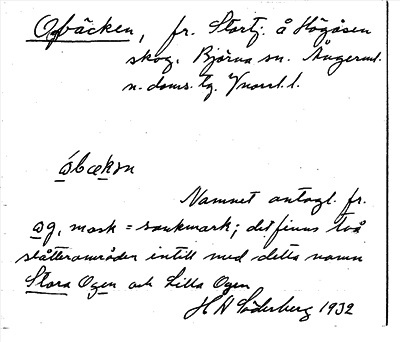 Ogbäcken, fr. Stortj. å Högåsen
skog. Björna sn. Ångerml.
n. doms. tg. Vnorrl. l.
óbækɘn
Namnet antagl. fr.
og, mosk = sankmark; det finns två
slåtterområden intill med detta namn
Stora Ogen och Lilla Ogen
H H Söderberg 1932